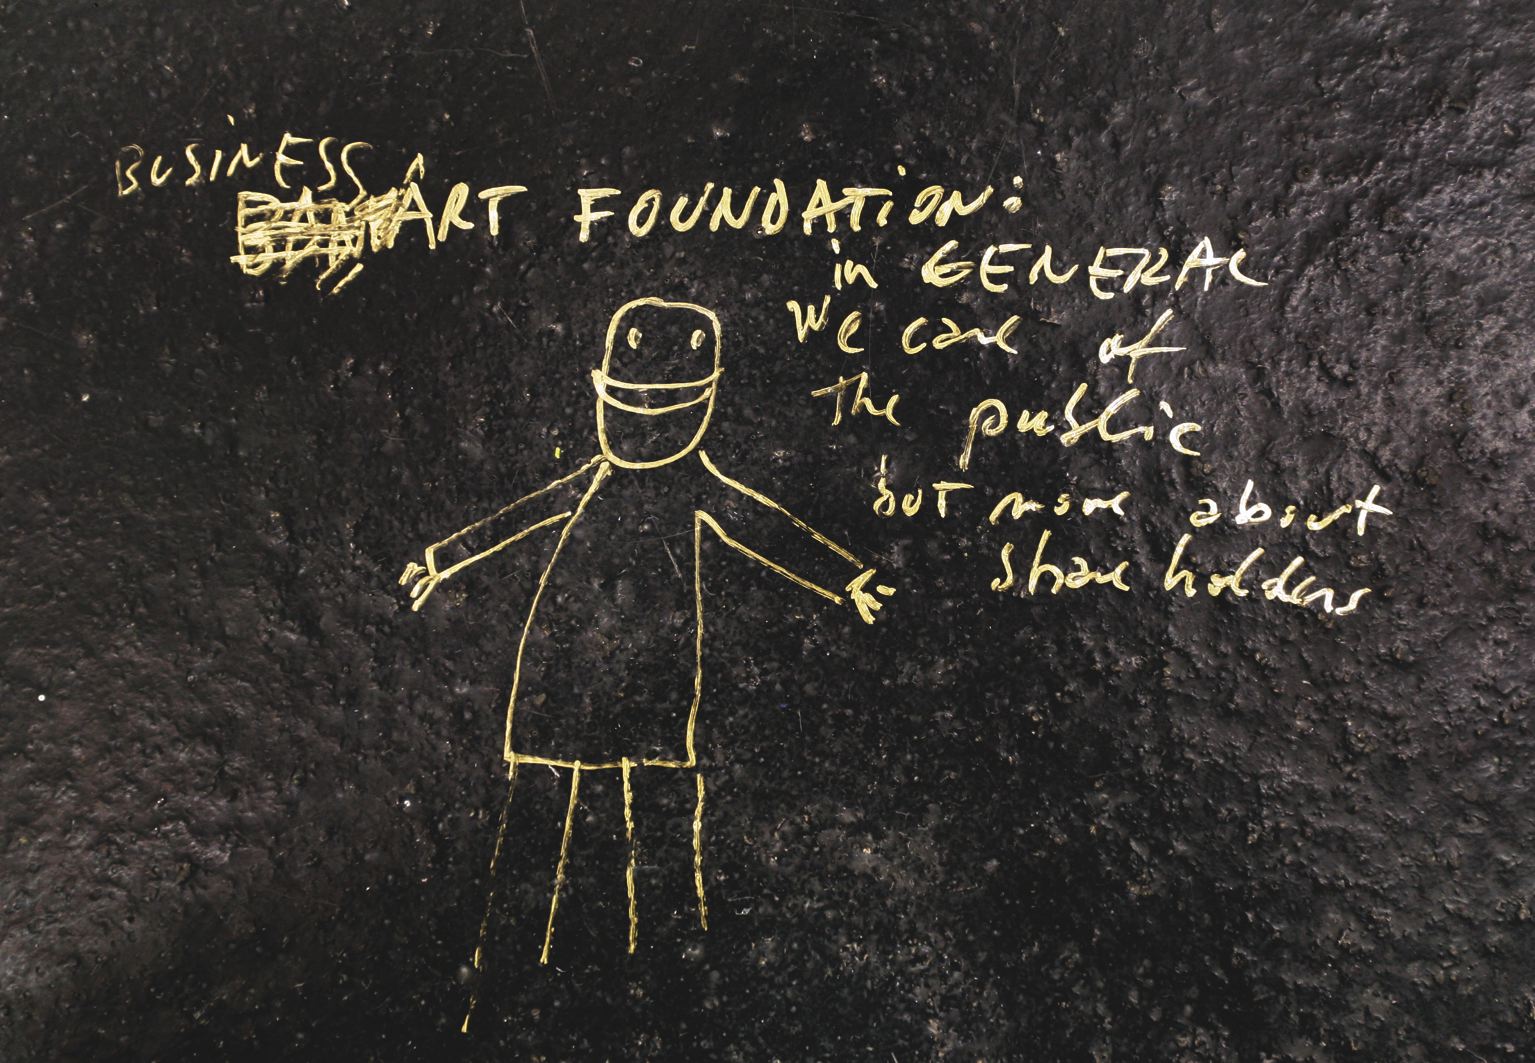 BUSINESS
ART FOUNDATION:
in GENERAL
We care of
The public
but more about
share holders